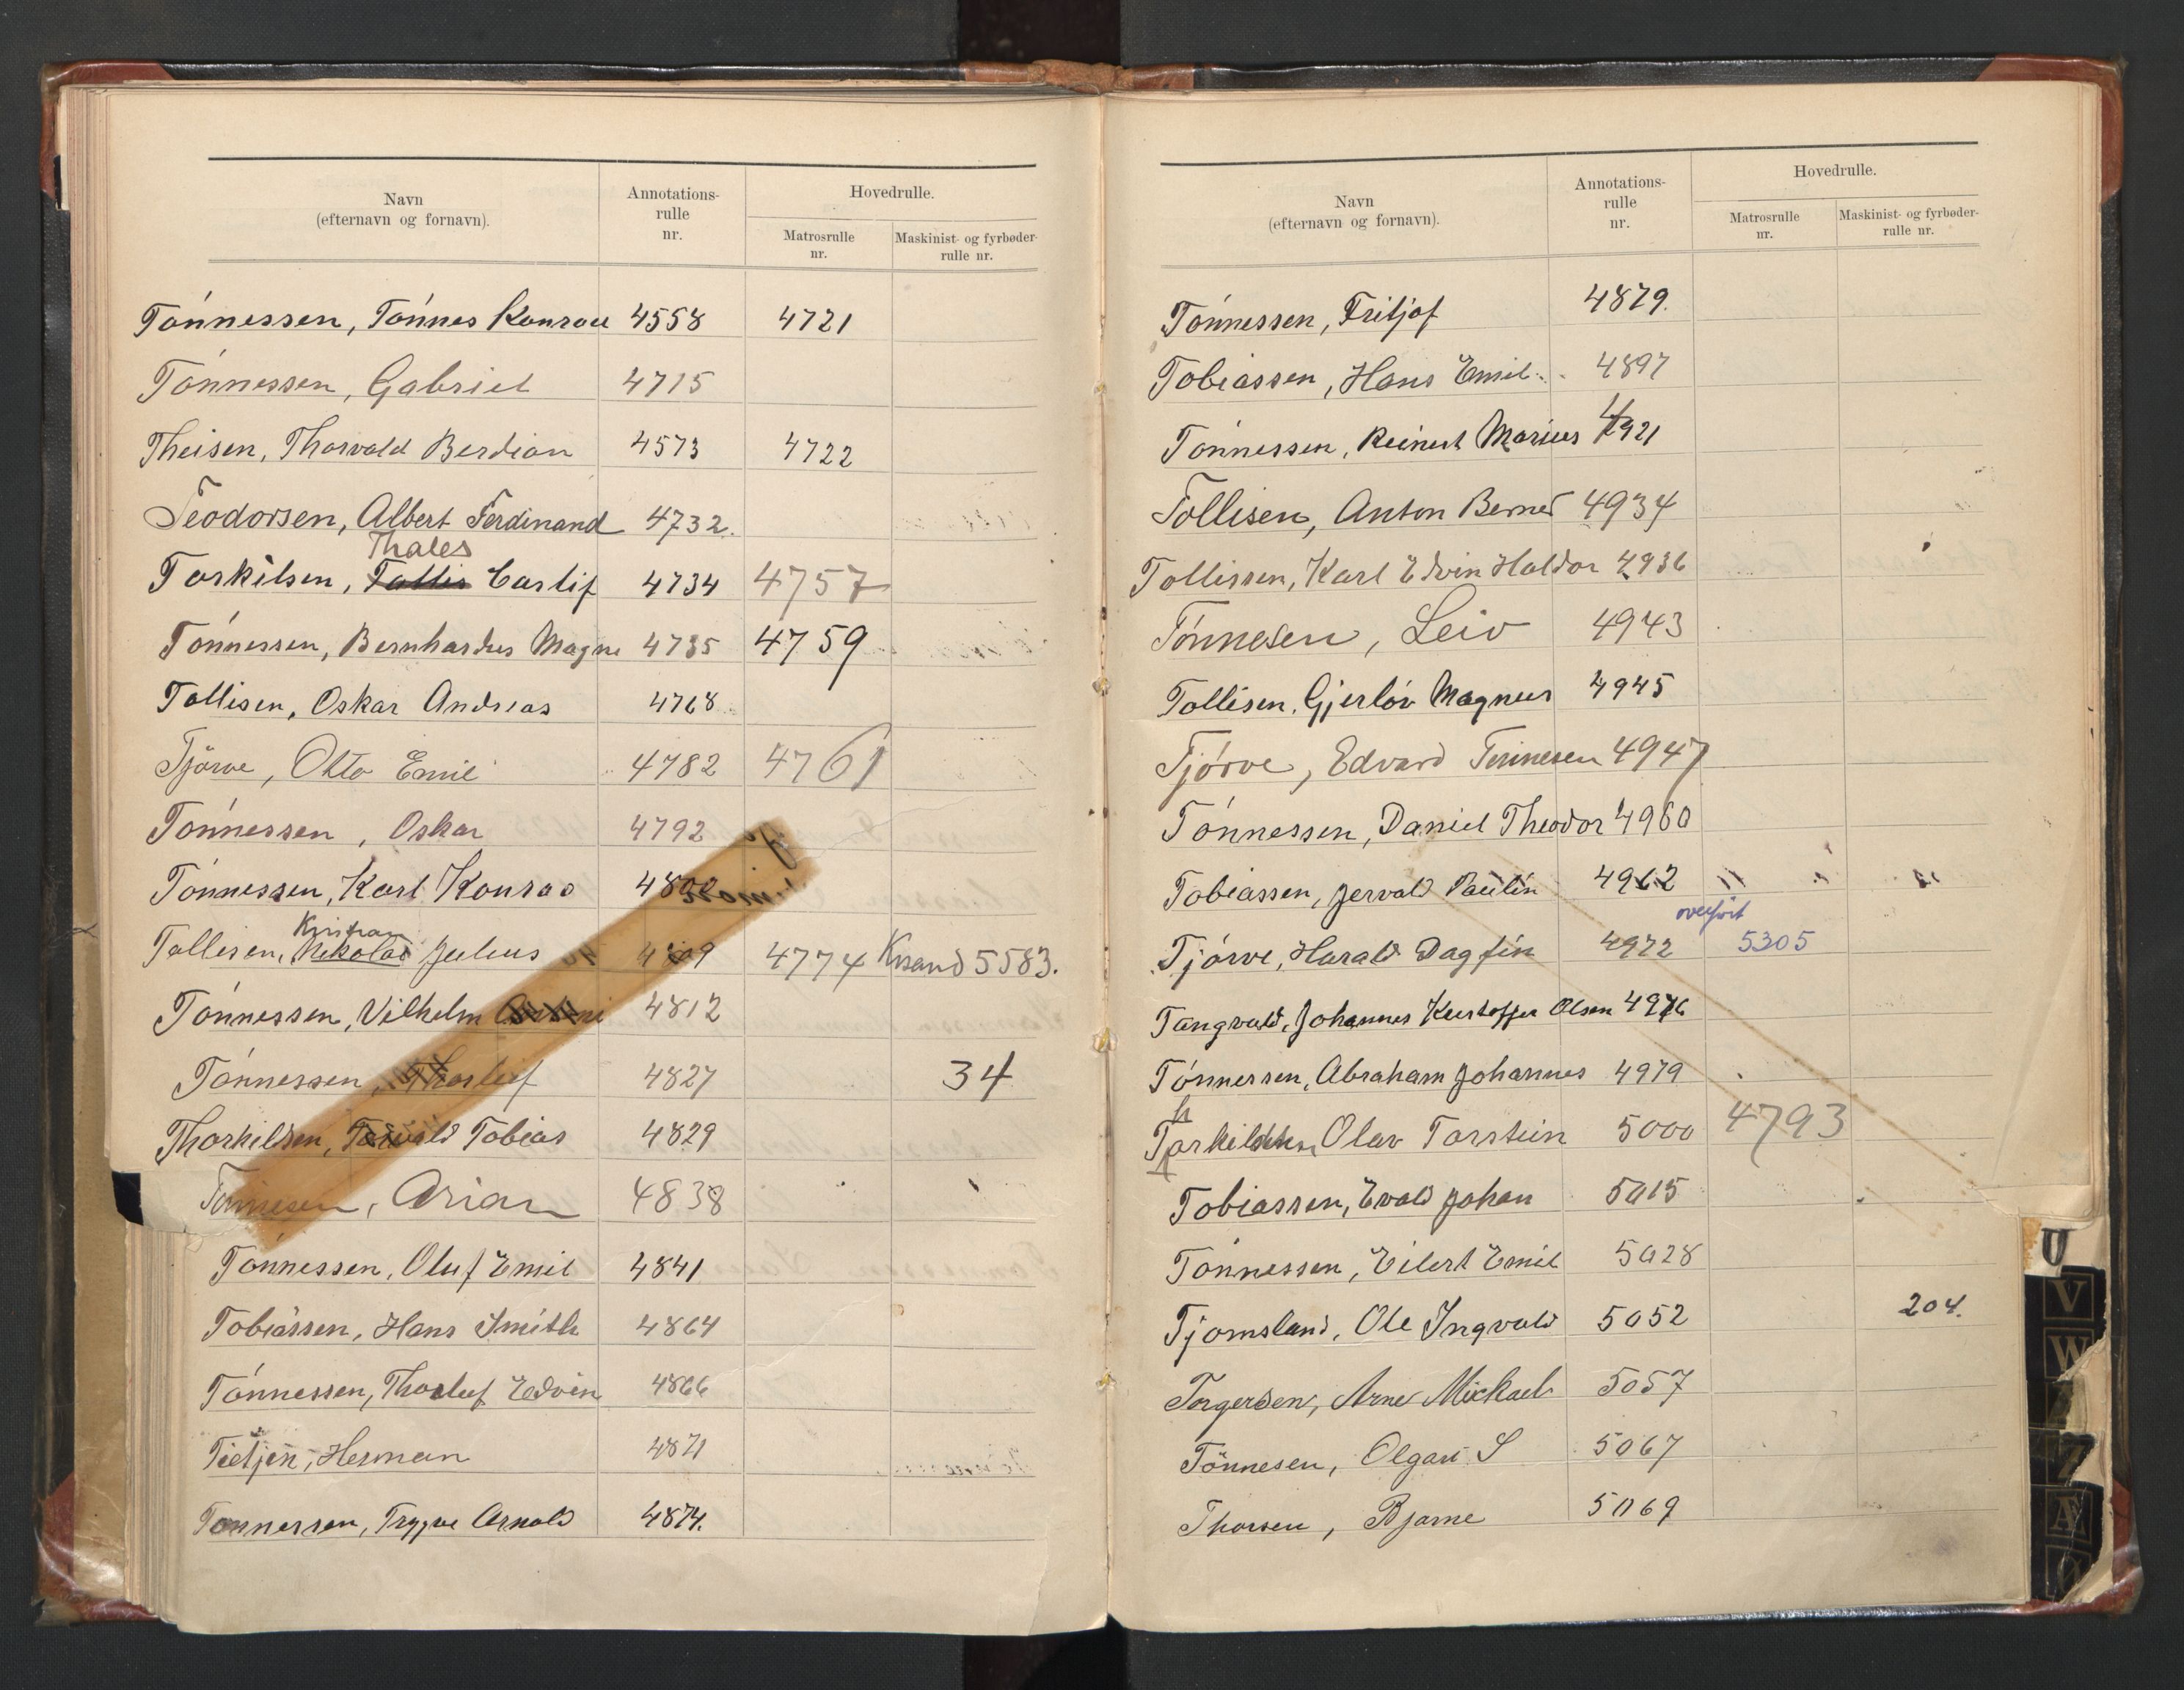 Navn (efternavn og fornavn). Annotations-rulle nr. Hovedrulle. Matrosrulle nr. Maskinist- og fyrbøder-rulle nr.
Tónnessen, Tónnes Konrad 4558 4721
Tónnessen, Gabriel 4715
Theisen, Thorvald Berdian 4573 4722
Teodorsen, Albert Ferdinand 4732.
Thales
Torkilsen, Tallis Carlif 4734 4757
Tónnessen, Bernhardus Magne 4735 4759
Tallisen, Oskar Andreas 4768
Tjörve, Otto Emil 4782 4761
Tónnessen, Oskar 4792
Tónnessen, Karl Konrad
Kristian
Tallisen, Nikolai Julius 4809 4774 Krsand 5583.
Tónnessen, Vilhelm 4812
Tónnessen, Thorleif 4827 34
Thorkildsen, Tobias 4829
Tönnesen, Arian 4838
Tónnessen, Oluf Emil 4841
Tobiassen, Hans Smith 4864
Tónnessen, Thorleif Edvin 4866
Tietjen, Herman 4871
Tonnessen, Trygve Arnold 4874.
Navn (efternavn og fornavn). Annotations-rulle nr. Hovedrulle. Matrosrulle nr. Maskinist- og fyrbøder-rulle nr.
Tónnessen, Fritjof 4879.
Tobiassen, Hans Emil 4897
Tónnessen, Reinert Marius 4921
Tollisen, Anton Bernt 4934
Tollissen, Karl Edvin Haldor 4936
Tónnesen, Leiv 4943
Tollisen, Gjerlóv Magnus 4945
Tjórve, Edvard Tónnesen 4947
Tónnessen, Daniel Theodor 4960
Tobiassen, Jervald Paulin 4962
overfört
Tjórve, Harald Dagfin 4972 5305
Tangvald, Johannes Kristoffer Olsen 4976
Tónnessen, Abraham Johannes 4979
Olav Torstein 5000 4793
Tobiassen, Evald Johan 5015
Tönnessen, Eilert Emil 5028
Tjomsland, Ole Ingvald 5052 204.
Torgersen, Arne Mickael 5057
Tönnesen, Olgar S 5067
Thorsen, Bjarne 5069
U
V
W
Z
Æ